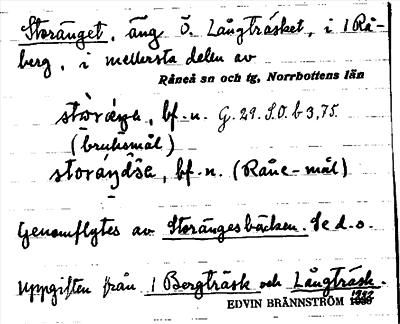 Storänget, äng Ö. Långträsket, i 1 Rå-
berg, i mellersta delen av
Råneå sn och tg, Norrbottens län
bf. n. G. 29. S.O. b 3,75.
(bruksmål)
bf. n. (Råne-mål)
Genomflytes av Storängesbäcken. Se d. o.
Uppgiften från 1 Bergträsk och Långträsk.
EDVIN BRÄNNSTRÖM